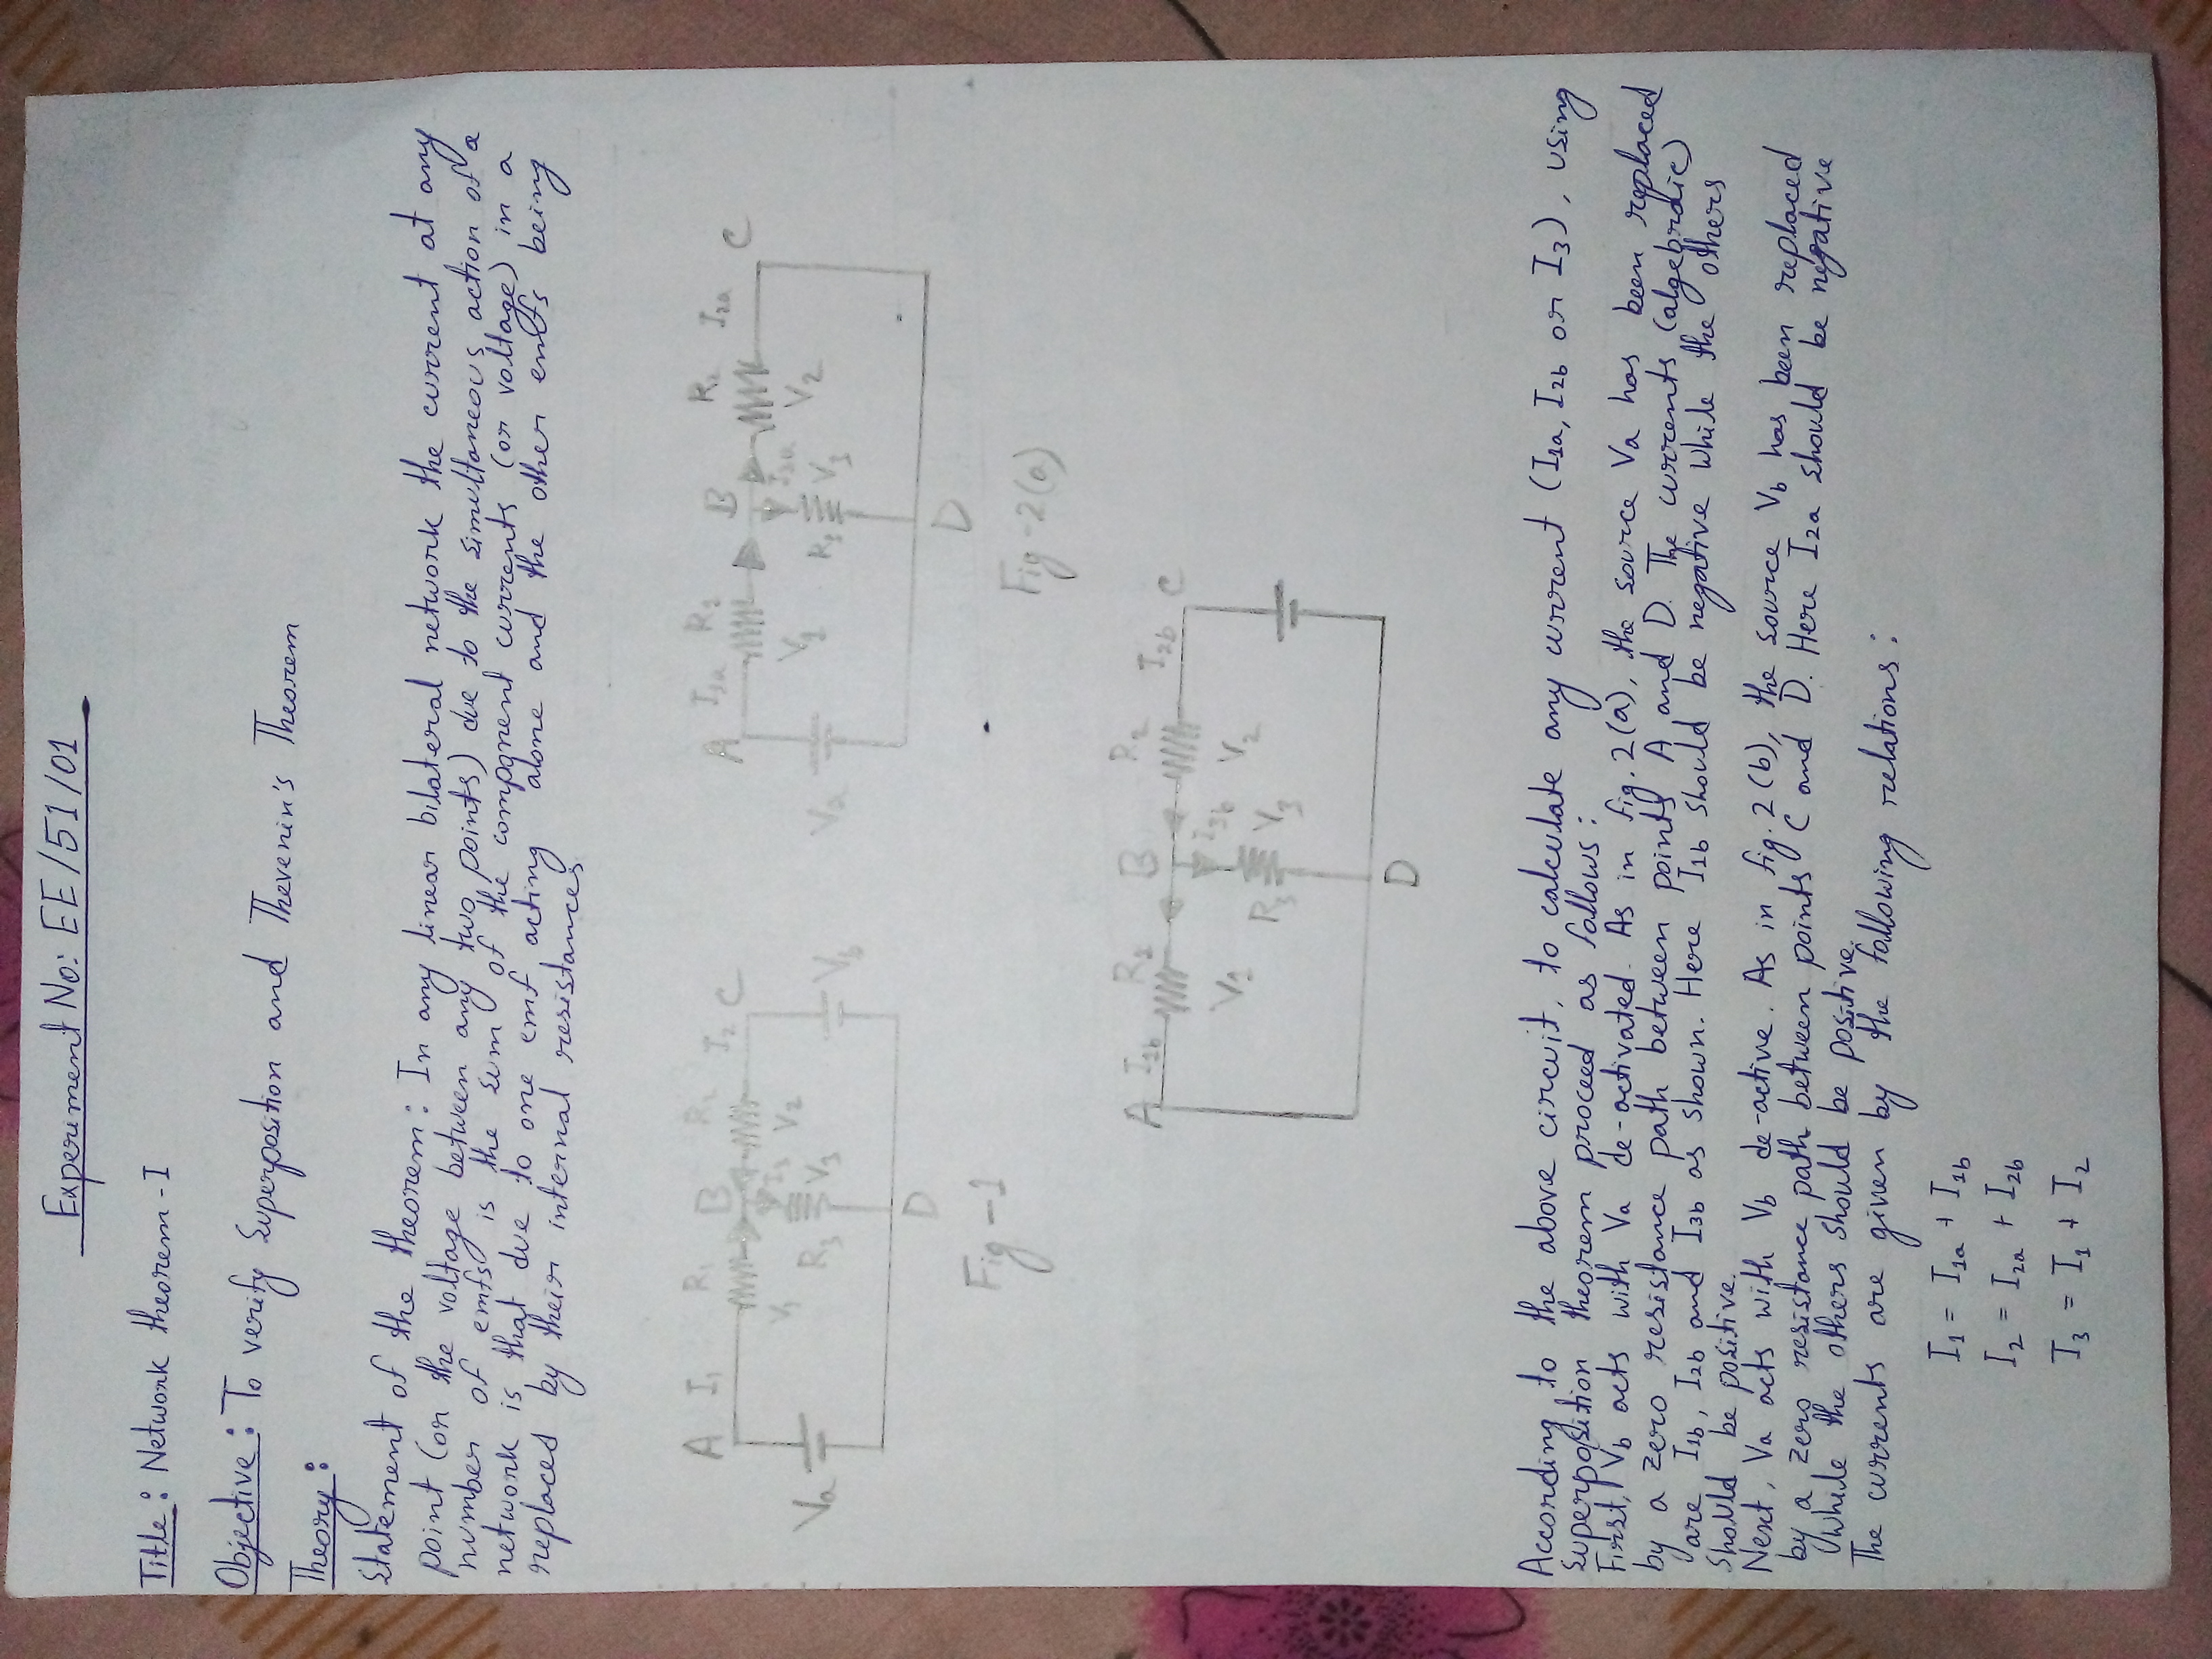 Experiment No: EE/51/01
Title: Network theorem - I
Objective: To verify Superposition and Thevenin's Theorem
Theory:
Statement of the theorem: In any linear bilateral network the current at any
point (or the voltage between any two points) due to the simultaneous action of a
number of emfs is the sum of the component currents (or voltage) in a
network is that due to one emf acting alone and the other emfs being
replaced by their internal resistances
A I1 R1 B R2 I2 C
Va V1 I3 V2
R3 V3 Vb
D
Fig -1
A I1a R1 B R2 I2a C
Va V1 I3a V2
R3 V3
D
Fig -2(a)
A I1b R1 B R2 I2b C
V1 I3b V2
R3 V3
D
According to the above circuit, to calculate any current (I1a, I2b or I3), using
Superposition theorem proceed as follows:
First, Vb acts with Va de-activated. As in fig. 2(a), the source Va has been replaced
by a zero resistance path between points A and D. The currents (algebraic)
are I1b, I2b and I3b as shown. Here I1b should be negative while the others
should be positive.
Next, Va acts with Vb de-active. As in fig. 2(b), the source Vb has been replaced
by a zero resistance path between points C and D. Here I2a should be negative
while the others should be positive.
The currents are given by the following relations:
I1 = I1a + I1b
I2 = I2a + I2b
I3 = I1 + I2